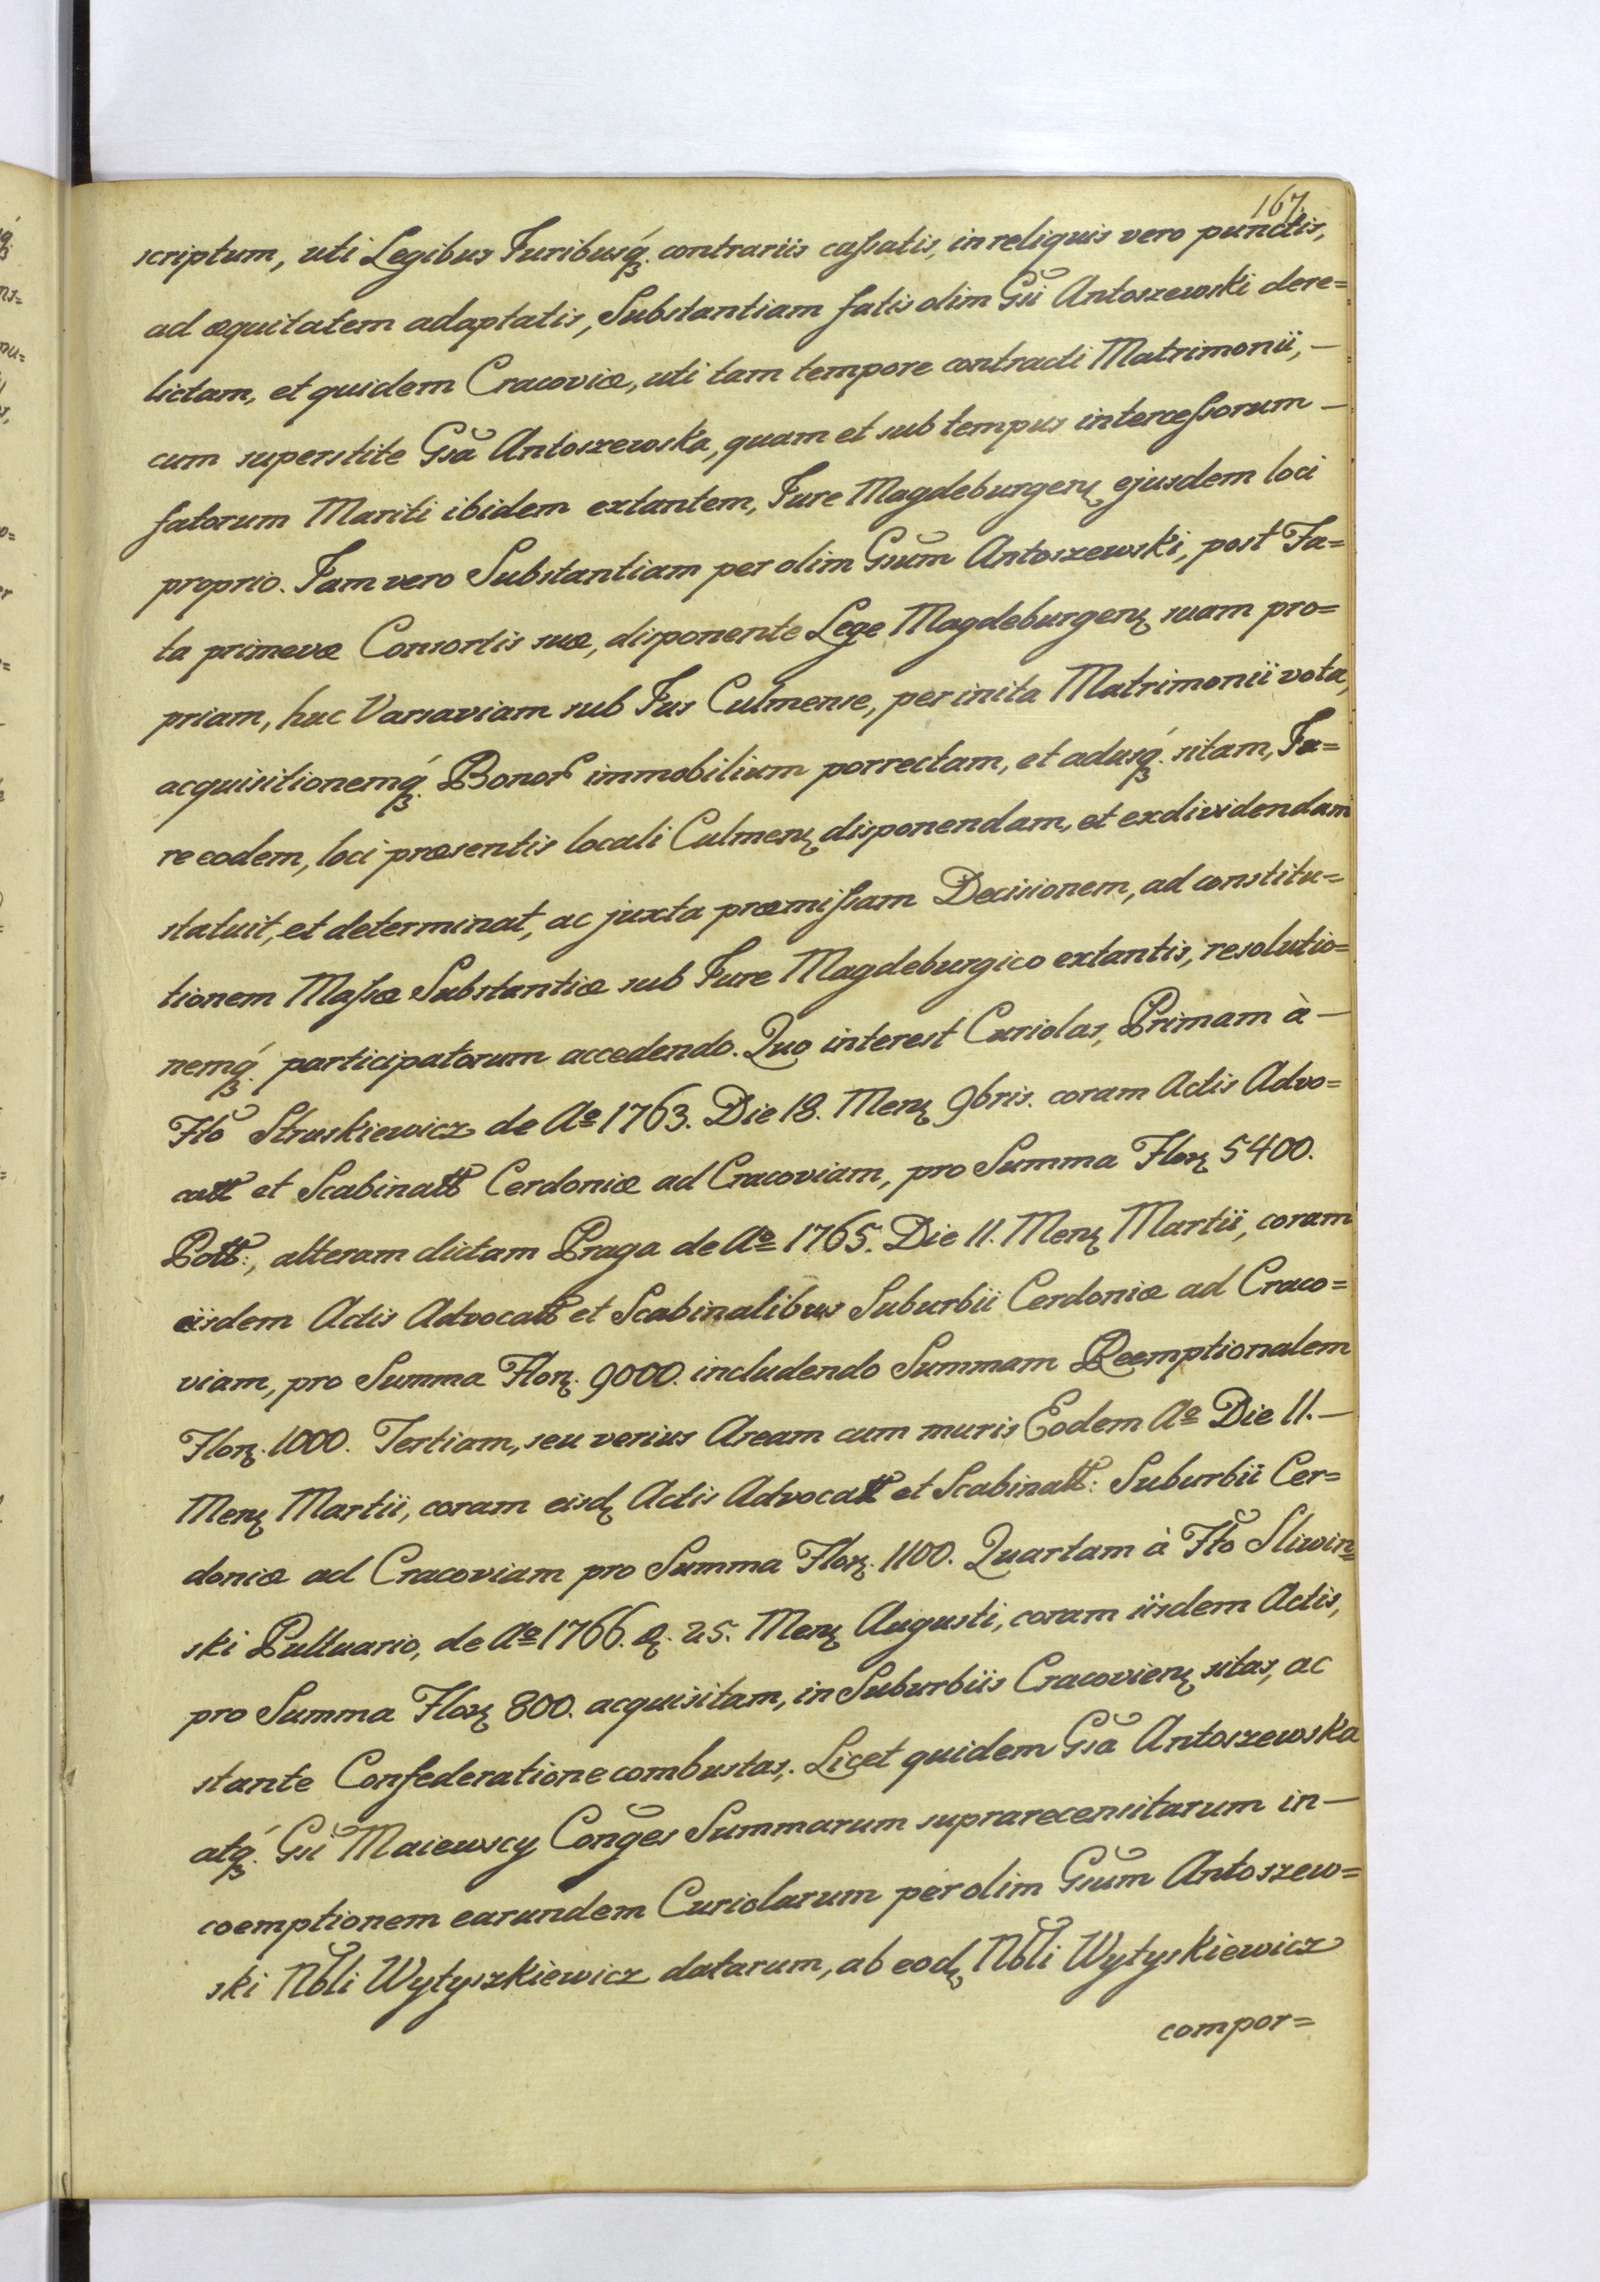 167.
scriptum, uti Legibus Juribusq́ꝫ. contrariis caſsatis, in reliquis vero punctis,
ad æquitatem adaptatis, Substantiam fatis olim Gsĩi Antoszewski dere=
lictam, et quidem Cracoviæ, uti tam tempore contracti Matrimonii, —
cum superstite Gsã Antoszewska, quam et sub tempus interceſsorum —
fatorum Mariti ibidem extantem, Jure Magdeburgenꝫ ejusdem loci
proprio. Jam vero Substantiam per olim Gsũm Antoszewski, post Fa=
ta primevæ Consortis suæ, disponente Lege Magdeburgenꝫ suam pro=
priam, huc Varsaviam sub Jus Culmense, per inita Matrimonii vota,
acquisitionemq́ꝫ. Bonorꝭ immobilium porrectam, et adusq́ꝫ. sitam, Ju=
re eodem, loci præsentis locali Culmenꝫ disponendam, et exdividendam
statuit, et determinat, ac juxta præmiſsam Decisionem, ad constitu=
tionem Maſsæ Substantiæ sub Jure Magdeburgico extantis, resolutio=
nemq́ꝫ. participatorum accedendo. Quo interest Curiolas, Primam à —
Ftõ Struskiewicz de Aº 1763. Die 18. Menꝫ 9bris. coram Actis Advo=
catt et Scabinatt Cerdoniæ ad Cracoviam, pro Summa Florꝫ 5400.
Pott:, alteram dictam Praga de Aº 1765. Die 11. Menꝫ Martii, coram
eisdem Actis Advocatt et Scabinalibus Suburbii Cerdoniæ ad Craco=
viam, pro Summa Florꝫ. 9000. includendo Summam Reemptionalem
Florꝫ. 1000. Tertiam, seu verius Aream cum muris Eodem Aº Die 11. —
Menꝫ Martii, coram eisdꝫ Actis Advocatt et Scabinatt: Suburbii Cer=
doniæ ad Cracoviam pro Summa Florꝫ. 1100. Quartam à Ftõ Sliwin=
ski Pultuario, de Aº 1766. D. 25. Menꝫ Augusti, coram iisdem Actis,
pro Summa Florꝫ 800. acquisitam, in Suburbiis Cracovienꝫ sitas, ac
stante Confederatione combustas,. Licet quidem Gsã Antoszewska
atq́ꝫ. Gsĩi Maiewscy Cong̃es Summarum suprarecensitarum in —
coemptionem earundem Curiolarum per olim Gsũm Antoszew=
ski Nb̃li Wytyszkiewicz datarum, ab eodꝫ Nb̃li Wytyskiewicz
compor=